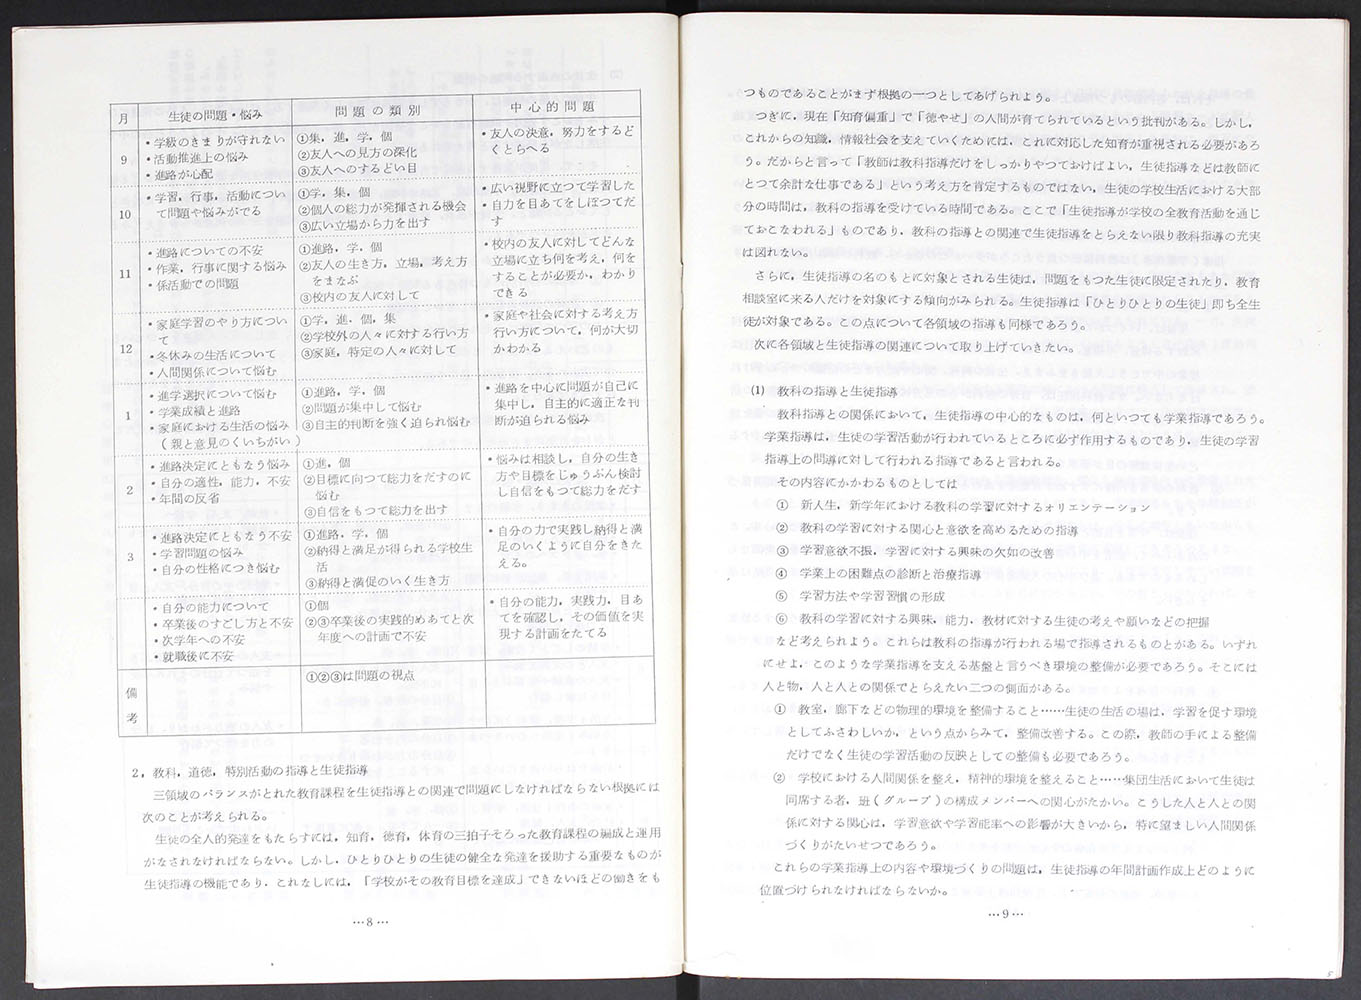 月 生徒の問題・悩み 問題の類別 中心的問題
9
・学級のきまりが守れない
・活動推進上の悩み
・進路が心配
①集，進，学，個
②友人への見方の深化
③友人へのするどい目
・友人の決意，努力をするど
くとらへる
10
・学習，行事，活動につい
て問題や悩みがでる
①学，集，個
②個人の総力が発揮される機会
③広い立場から力を出す
・広い視野に立つて学習した
・自力を目あてをしぼつてだ
す
11
・進路についての不安
・作業，行事に関する悩み
・係活動での問題
①進路，学，個
②友人の生き方，立場，考え方
をまなぶ
③校内の友人に対して
・校内の友人に対してどんな
立場に立ち何を考え，何を
することが必要か，わかり
できる
12
・家庭学習のやり方につい
て
・冬休みの生活について
・人間関係について悩む
①学，進，個，集
②学校外の人々に対する行い方
③家庭，特定の人々に対して
・家庭や社会に対する考え方
行い方について，何が大切
かわかる
1
・進学選択について悩む
・学業成績と進路
・家庭における生活の悩み
（親と意見のくいちがい）
①進路，学，個
②問題が集中して悩む
③自主的判断を強く迫られ悩む
・進路を中心に問題が自己に
集中し，自主的に適正な判
断が迫られる悩み
2
・進路決定にともなう悩み
・自分の適性，能力，不安
・年間の反省
①進，個
②目標に向つて総力をだすのに
悩む
③自信をもつて総力を出す
・悩みは相談し，自分の生き
方や目標をじゅうぶん検討
し自信をもつて総力をだす
3
・進路決定にともなう不安
・学習問題の悩み
・自分の性格につき悩む
①進路，学，個
②納得と満足が得られる学校生
活
③納得と満促のいく生き方
・自分の力で実践し納得と満
足のいくように自分をきた
える。
・自分の能力について
・卒業後のすごし方と不安
・次学年への不安
・就職後に不安
①個
②③卒業後の実践的めあてと次
年度への計画で不安
・自分の能力，実践力，目あ
てを確認し，その価値を実
現する計画をたてる
備考
①②③は問題の視点
2，教科，道徳，特別活動の指導と生徒指導
三領域のバランスがとれた教育課程を生徒指導との関連で問題にしなければならない根拠には
次のことが考えられる。
生徒の全人的発達をもたらすには，知育，徳育，体育の三拍子そろった教育課程の編成と運用
がなされなければならない。しかし，ひとりひとりの生徒の健全な発達を援助する重要なものが
生徒指導の機能であり，これなしには，「学校がその教育目標を達成」できないほどの働きをも
…8…
つものであることがまず根拠の一つとしてあげられよう。
つぎに，現在「知育偏重」で「徳やせ」の人間が育てられているという批判がある。しかし，
これからの知識，情報社会を支えていくためには，これに対応した知育が重視される必要があろ
う。だからと言って「教師は教科指導だけをしっかりやつておけばよい，生徒指導などは教師に
とつて余計な仕事である」という考え方を肯定するものではない，生徒の学校生活における大部
分の時間は，教科の指導を受けている時間である。ここで「生徒指導が学校の全教育活動を通じ
ておこなわれる」ものであり，教科の指導との関連で生徒指導をとらえない限り教科指導の充実
は図れない。
さらに，生徒指導の名のもとに対象とされる生徒は，問題をもつた生徒に限定されたり，教育
相談室に来る人だけを対象にする傾向がみられる。生徒指導は「ひとりひとりの生徒」即ち全生
徒が対象である。この点について各領域の指導も同様であろう。
次に各領域と生徒指導の関連について取り上げていきたい。
(1) 教科の指導と生徒指導
教科指導との関係において，生徒指導の中心的なものは，何といつても学業指導であろう。
学業指導は，生徒の学習活動が行われているところに必ず作用するものであり，生徒の学習
指導上の問導に対して行われる指導であると言われる。
その内容にかかわるものとしては
① 新人生，新学年における教科の学習に対するオリエンテーション
② 教科の学習に対する関心と意欲を高めるための指導
③ 学習意欲不振，学習に対する興味の欠如の改善
④ 学業上の困難点の診断と治療指導
⑤ 学習方法や学習習慣の形成
⑥ 教科の学習に対する興味，能力，教材に対する生徒の考えや願いなどの把握
など考えられよう。これらは教科の指導が行われる場で指導されるものとがある。いずれ
にせよ，このような学業指導を支える基盤と言うべき環境の整備が必要であろう。そこには
人と物，人と人との関係でとらえたい二つの側面がある。
① 教室，廊下などの物理的環境を整備すること……生徒の生活の場は，学習を促す環境
としてふさわしいか，という点からみて，整備改善する。この際，教師の手による整備
だけでなく生徒の学習活動の反映としての整備も必要であろう。
② 学校における人間関係を整え，精神的環境を整えること……集団生活において生徒は
同席する者，班（グループ）の構成メンバーへの関心がたかい。こうした人と人との関
係に対する関心は，学習意欲や学習能率への影響が大きいから，特に望ましい人間関係
づくりがたいせつであろう。
これらの学業指導上の内容や環境づくりの問題は，生徒指導の年間計画作成上どのように
位置づけられなければならないか。
…9…